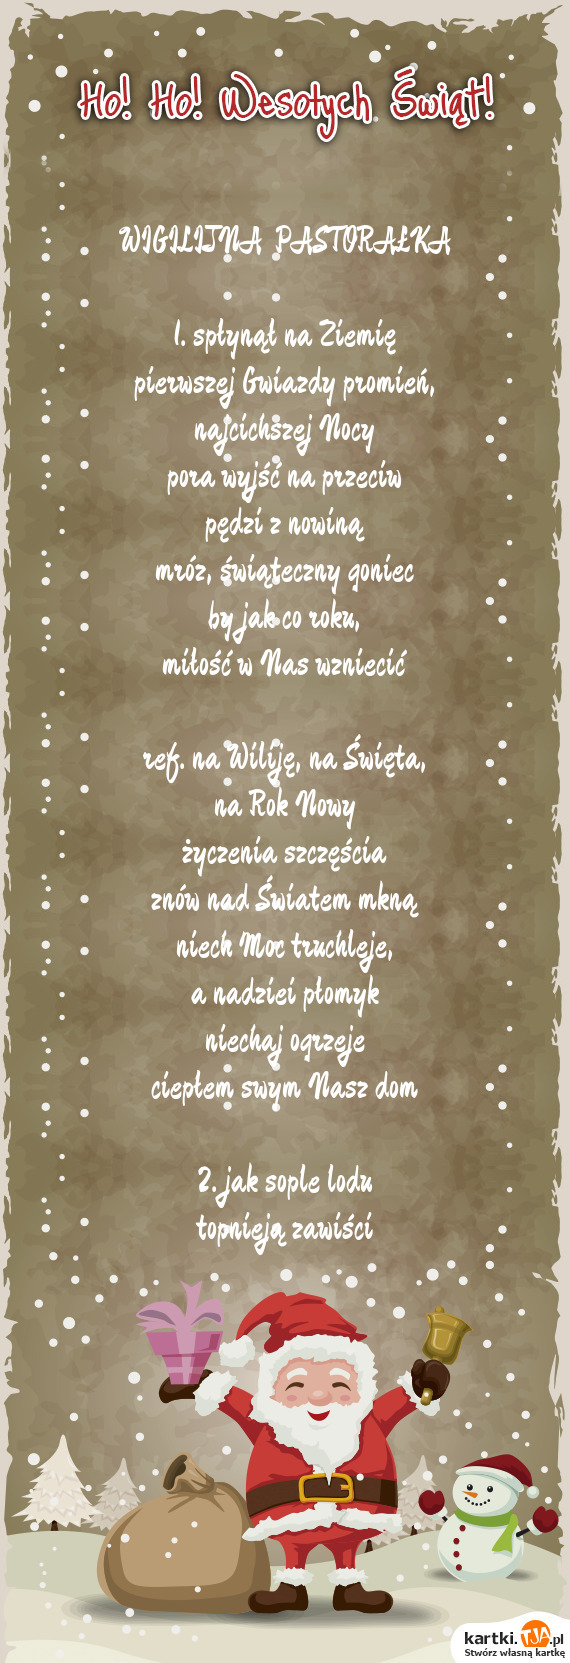 Ho! Ho! Wesołych Świąt!
WIGILIJNA PASTORAŁKA
1. spłynął na Ziemię
pierwszej Gwiazdy promień,
najcichszej Nocy
pora wyjść na przeciw
pędzi z nowiną
mróz, świąteczny goniec
by jak co roku,
miłość w Nas wzniecić
ref. na Wiliję, na Święta,
na Rok Nowy
życzenia szczęścia
znów nad Światem mkną
niech Moc truchleje,
a nadziei płomyk
niechaj ogrzeje
ciepłem swym Nasz dom
2. jak sople lodu
topnieją zawiści
kartki.TJA.pl
Stwórz własną kartkę